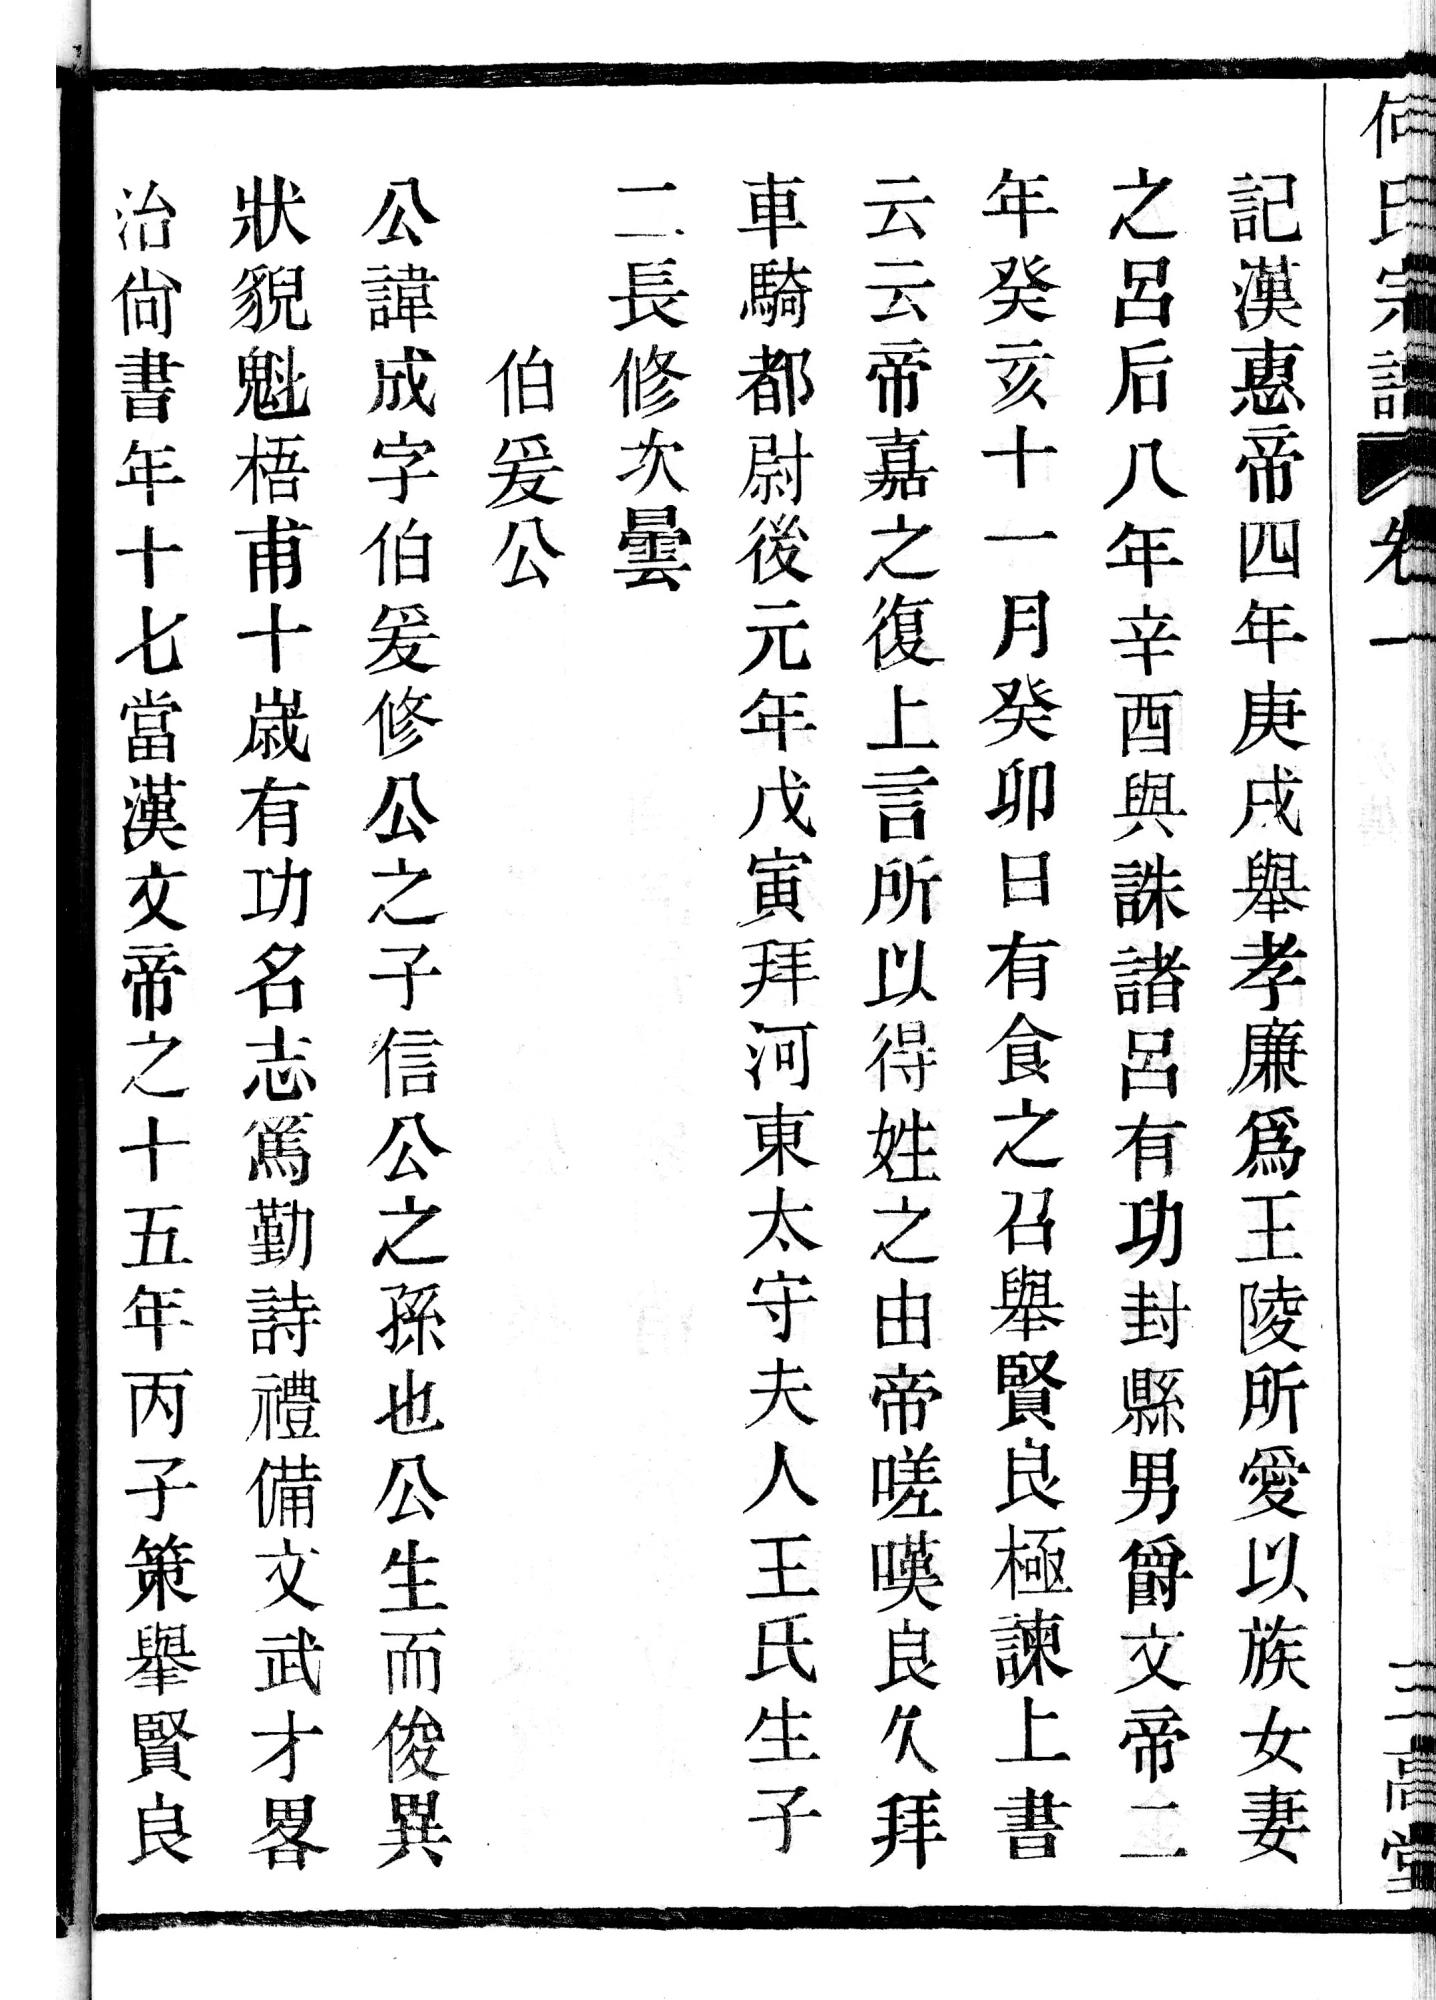 何氏宗譜 卷一 三高堂
記漢惠帝四年庚戌舉孝廉爲王陵所愛以族女妻
之呂后八年辛酉與誅諸呂有功封縣男爵文帝二
年癸亥十一月癸卯日有食之召舉賢良極諫上書
云云帝嘉之復上言所以得姓之由帝嗟嘆良久拜
車騎都尉後元年戊寅拜河東太守夫人王氏生子
二長修次曇
伯爰公
公諱成字伯爰修公之子信公之孫也公生而俊異
狀貌魁梧甫十歲有功名志篤勤詩禮備文武才畧
治尙書年十七當漢文帝之十五年丙子策舉賢良